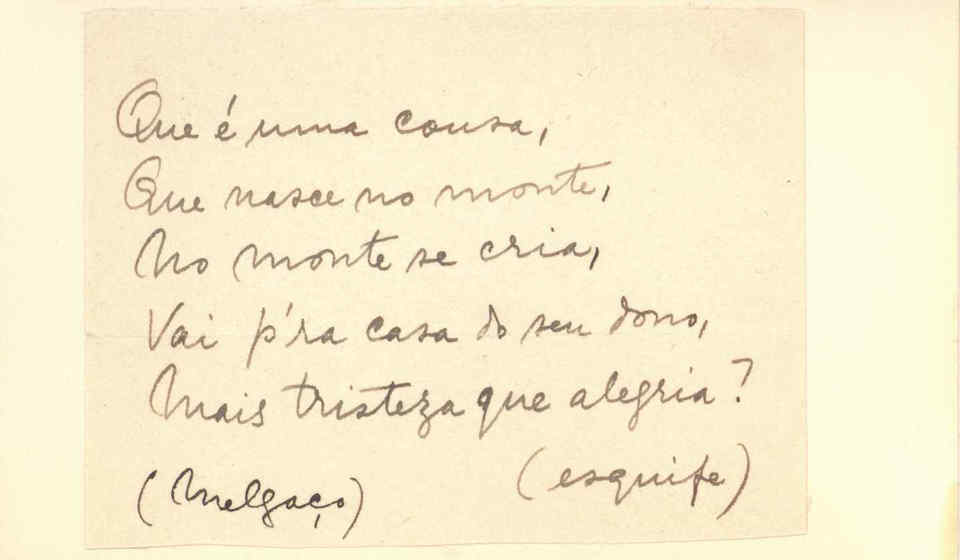 Que é uma cousa,
Que nasce no monte,
No monte se cria,
Vai p'ra casa do seu dono,
Mais tristeza que alegria?
(Melgaço) (esquife)